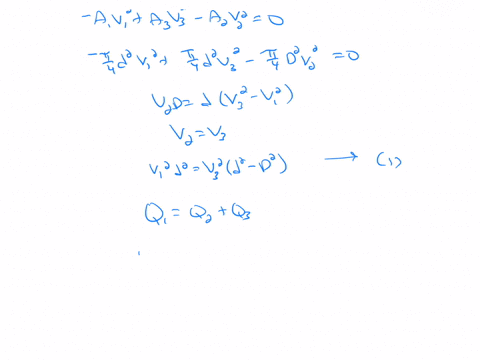 -A₁V₁² + A₃V₃² - A₂V₂² = 0
-π/4 d² V₁² + π/4 d² V₃² - π/4 D² V₂² = 0
V₂D = d (V₃² - V₁²)
V₂ = V₃
V₁² d² = V₃² (d² - D²) → (1)
Q₁ = Q₂ + Q₃